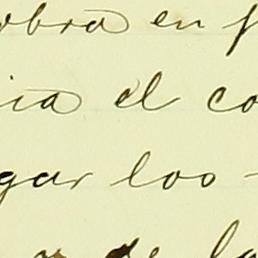 obra en f
ia el co
gar los -
de la